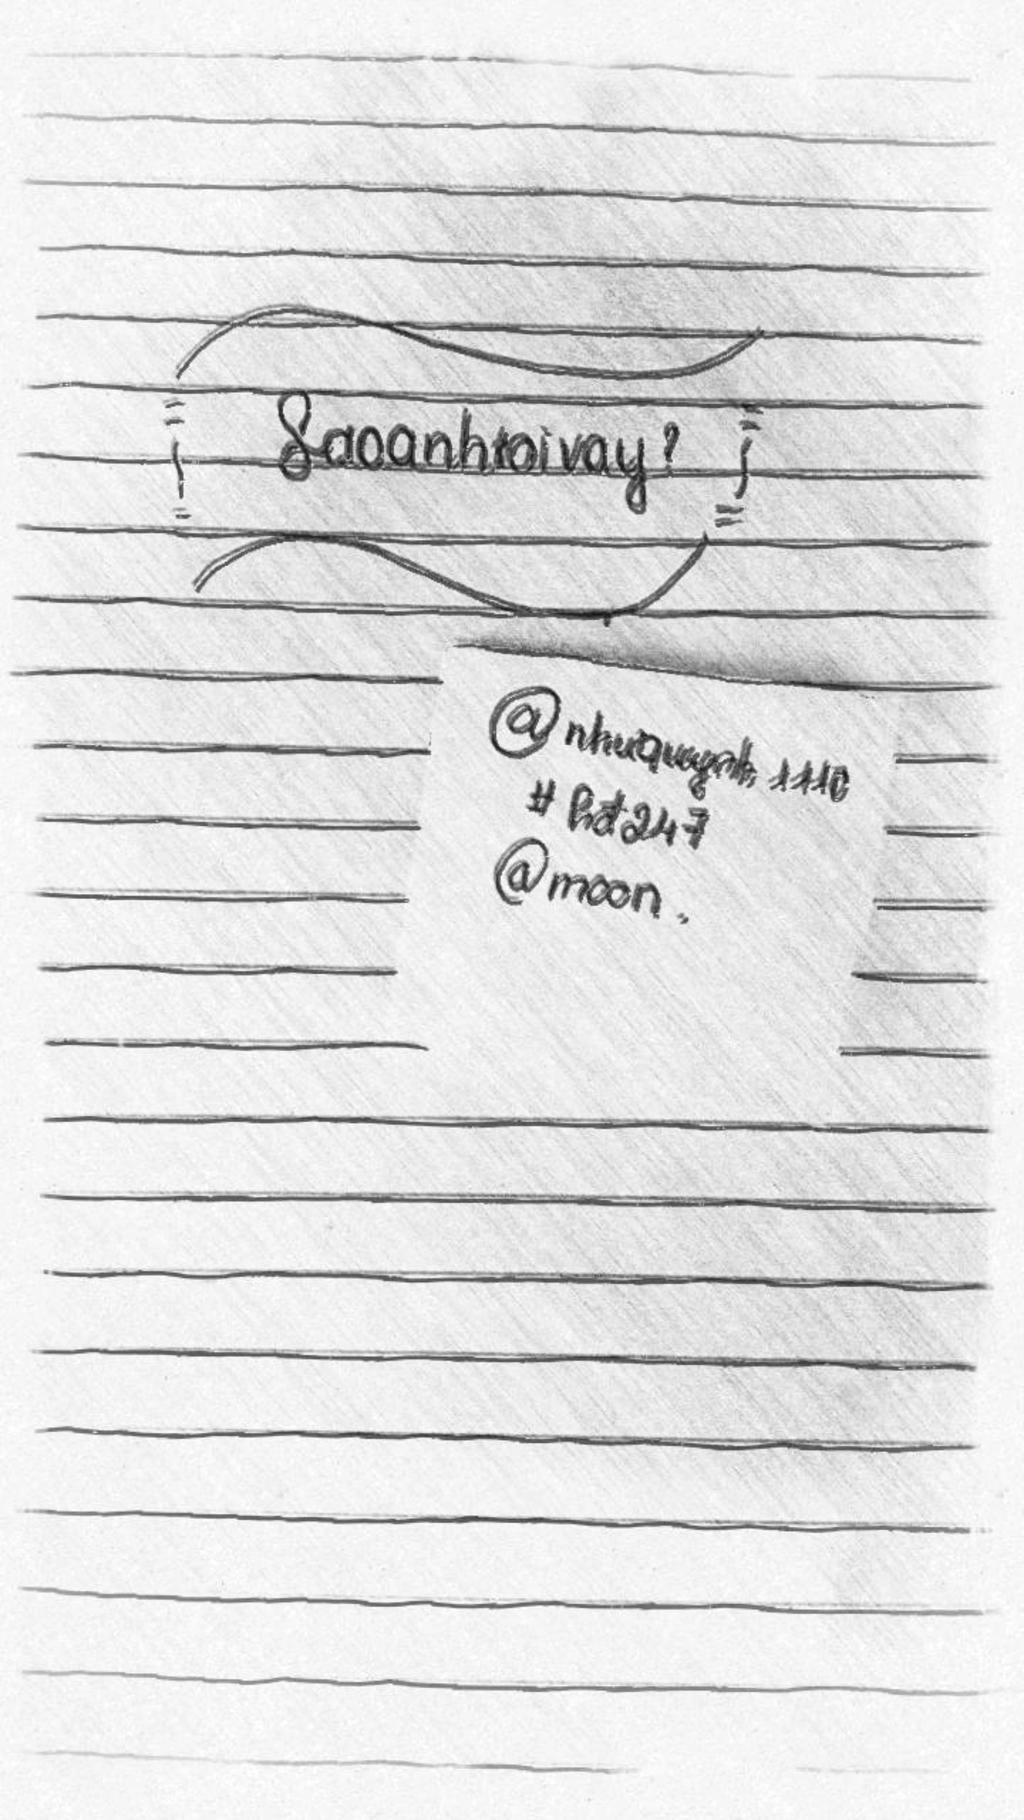 Saoanhtoivay?
@nhuquynh.1110
#hđ247
@moon.